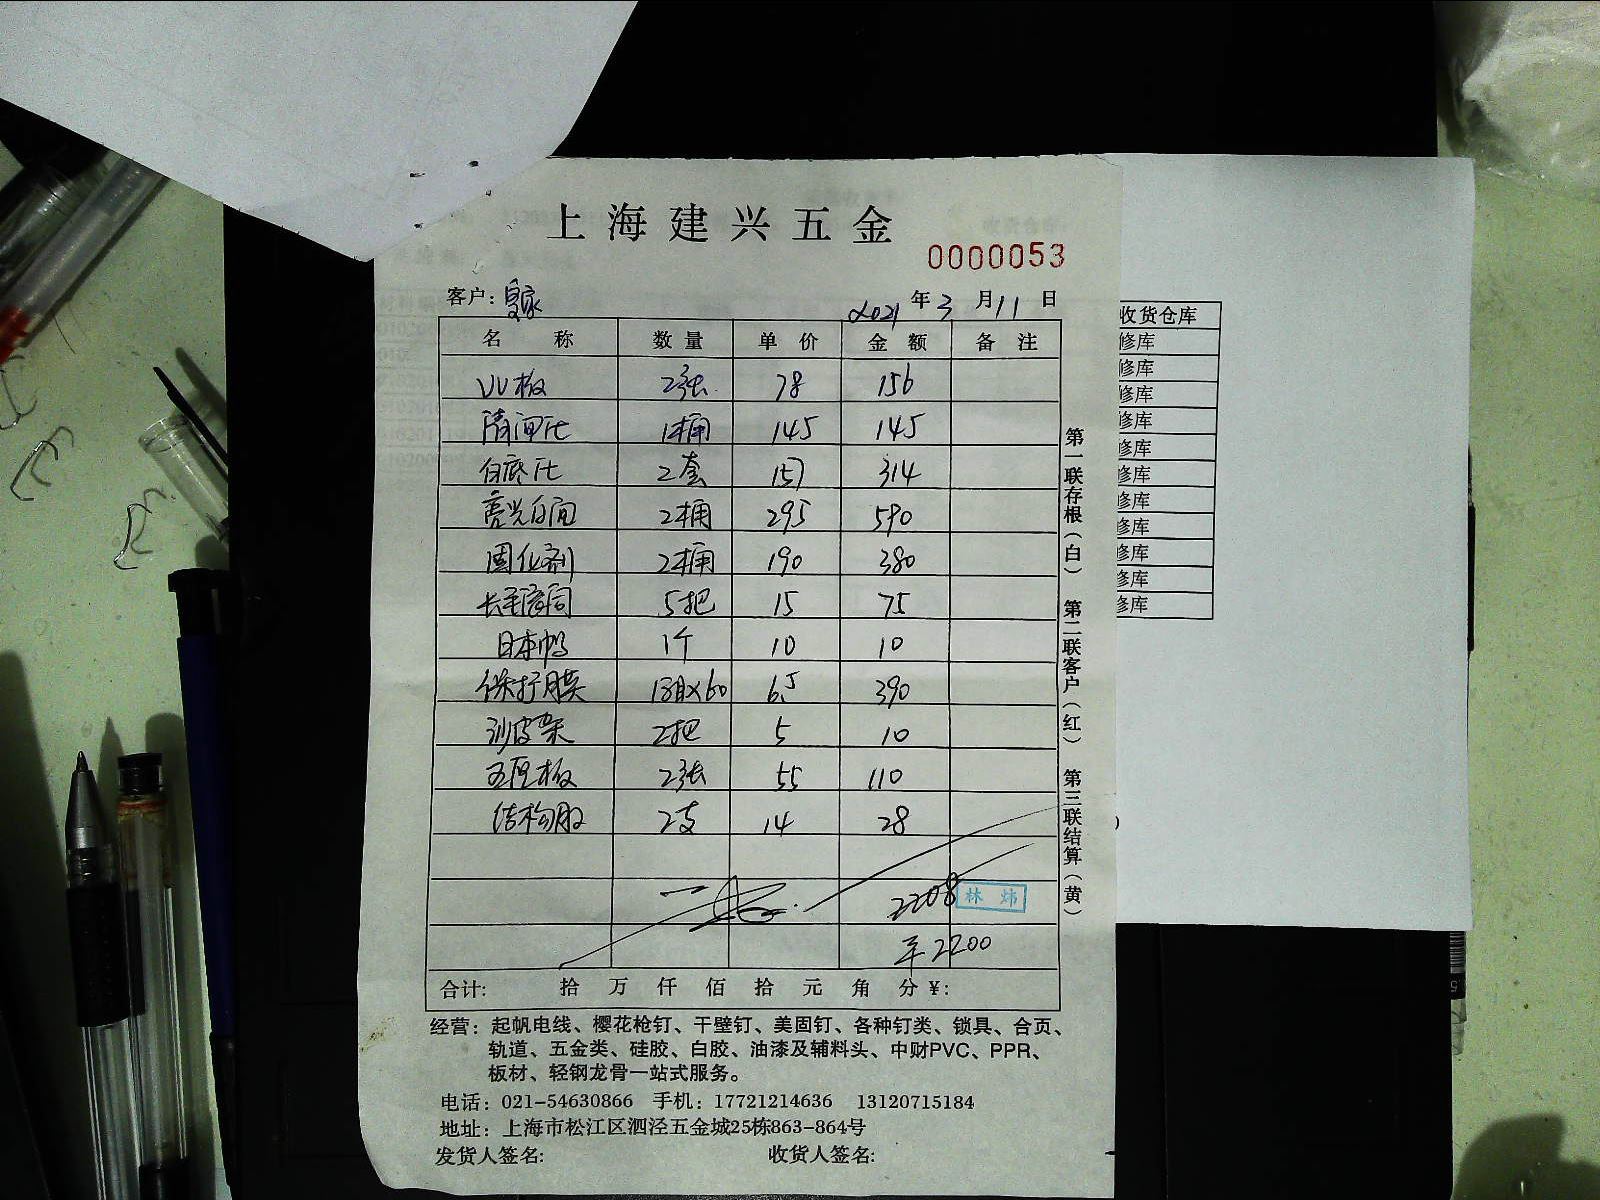 上海建兴五金
0000053
客户: 皇家 2021年3月11日
名称 数量 单价 金额 备注
UV板 2张 78 156
清面漆 1桶 145 145
白底漆 2套 157 314
亮光白面 2桶 295 590
固化剂 2桶 190 380
长毛滚筒 5把 15 75
日本 1个 10 10
保护膜 ×60 6.5 390
沙皮架 2把 5 10
五厘板 2张 55 110
结构胶 2支 14 28
2208
林炜
平2200
合计: 拾 万 仟 佰 拾 元 角 分 ¥:
第一联存根(白) 第二联客户(红) 第三联结算(黄)
经营: 起帆电线、樱花枪钉、干壁钉、美固钉、各种钉类、锁具、合页、
轨道、五金类、硅胶、白胶、油漆及辅料头、中财PVC、PPR、
板材、轻钢龙骨一站式服务。
电话: 021-54630866 手机: 17721214636 13120715184
地址: 上海市松江区泗泾五金城25栋863-864号
发货人签名: 收货人签名:
收货仓库
修库
修库
修库
修库
修库
修库
修库
修库
修库
修库
修库